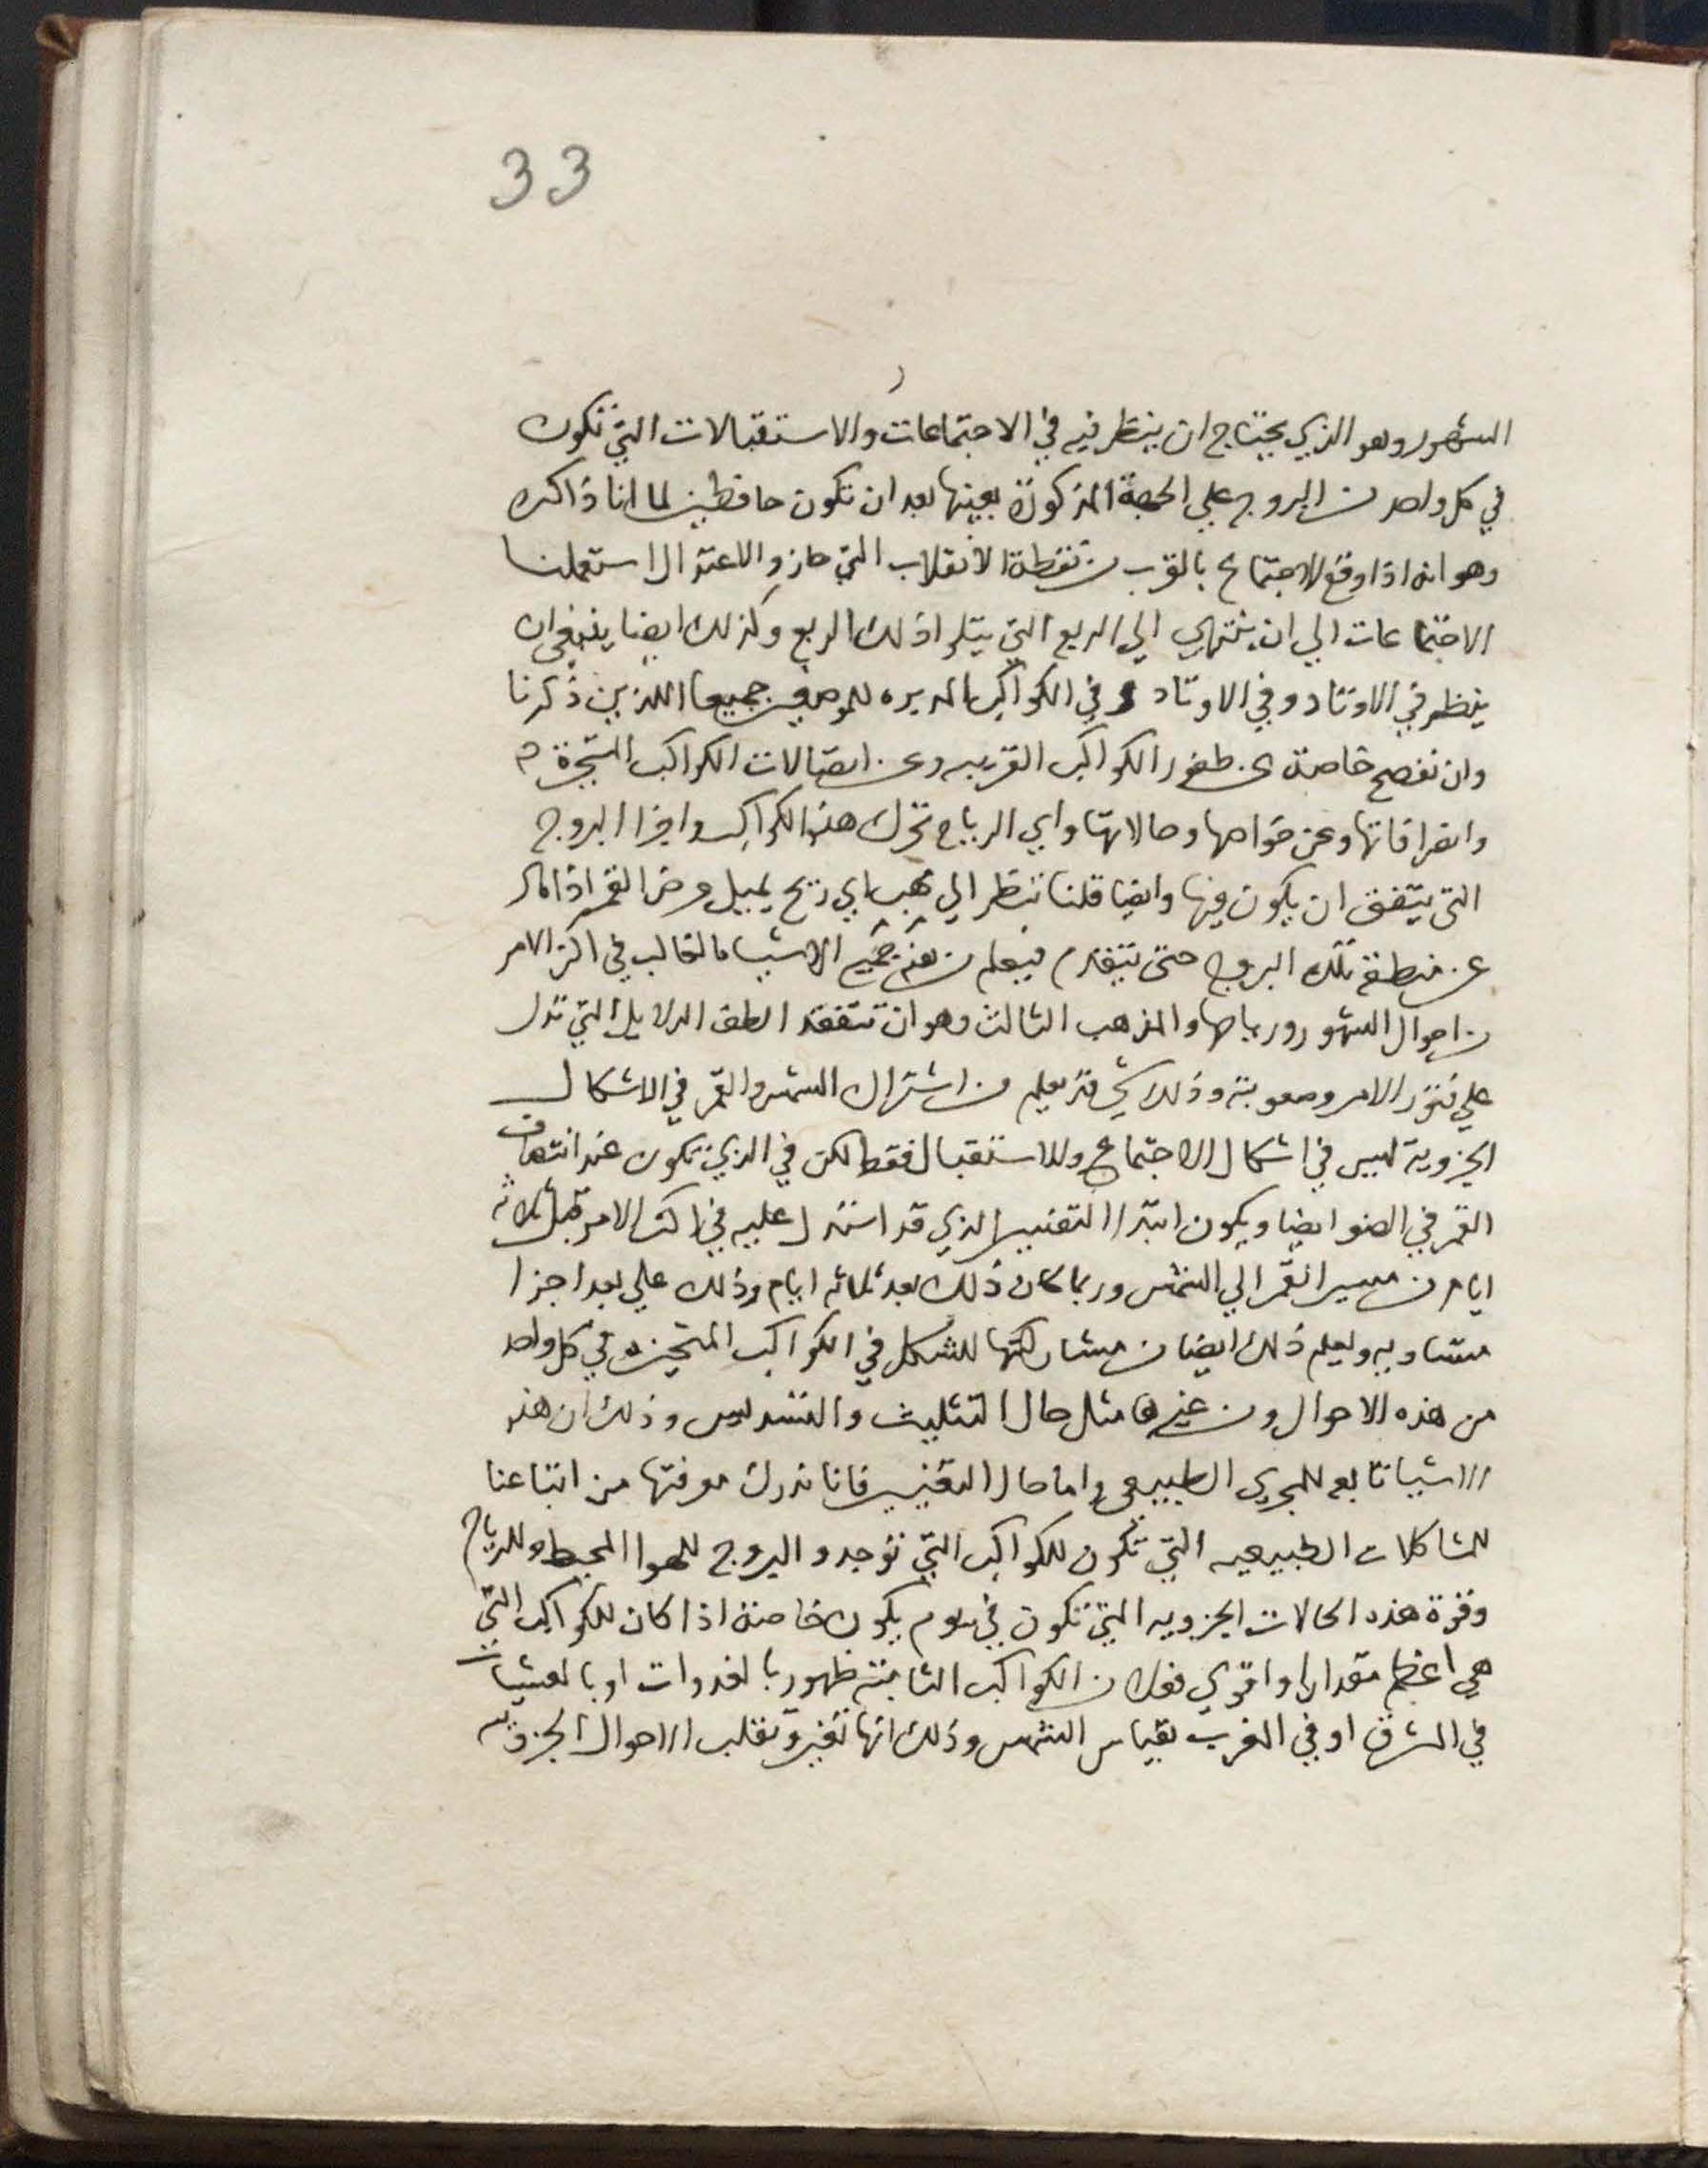 33
الشهور وهو الذي يحتاج ان ينظر فيه في الاجتماعات والاستقبالات التي تكون
في كل واحد من البروج علي الجهة المذكورة بعينها بعد ان نكون حافظين لما انا ذاكره
وهو انه اذا وقع الاجتماع بالقرب من نقطة الانقلاب التي حاز والاعتدال استعملنا
الاجتماعات الي ان ينتهي الي الربع التي يتلوا ذلك الربع وكذلك ايضا ينبغي ان
ينظر في الاوتاد وفي الاوتاد وفي الكواكب المدبره للموضعين جميعا اللذين ذكرنا
وان نفصح خاصة عن ظهور الكواكب القريبه وعن اتصالات الكواكب المتحيرة
وانصرافاتها وعن خواصها وحالاتها واي الرياح تحرك هذه الكواكب واجزا البروج
التي يتفق ان يكون فيها وايضا قلنا ننظر الي مهب اي ريح يميل عرض القمر اذا مال
عن منطقة تلك البروج حتي يتقدم فيعلم من جميع الاشيا ما الغالب في اكثر الامر
من احوال الشهور ورياحها والمذهب الثالث وهو ان نتفقد الطف الدلايل التي تدل
علي فتور الامر وصعوبته وذلك شي قد يعلم من اشتراك الشمس والقمر في الاشكال
الجزوية ليس في اشكال الاجتماع والاستقبال فقط لكن في الذي تكون عند انتصاف
القمر في الضو ايضا ويكون ابتدا التغيير الذي قد استدل عليه في اكثر الامر قبل ثلاثه
ايام من مسير القمر الي الشمس وربما كان ذلك بعد ثلاثه ايام وذلك علي بعد اجزا
متساويه ويعلم ذلك ايضا من مشاركتها للشكل في الكواكب المتحيره في كل واحد
من هذه الاحوال ومن غيرها مثل حال التثليث والتسديس وذلك ان هذه
الاشيا تابعه للمجري الطبيعي واما حال التغيير فانا ندرك معرفتها من اتباعنا
للمشاكلات الطبيعيه التي تكون للكواكب التي توجد والبروج للهوا المحيط وللرياح
وقوة هذه الحالات الجزويه التي تكون في يوم يكون خاصة اذا كان للكواكب التي
هي اعظم مقدارا واقوي فعلا من الكواكب الثابته ظهور بالغدوات او بالعشيات
في المشرق او في المغرب بقياس الشمس وذلك انها تغير وتقلب الاحوال الجزويه